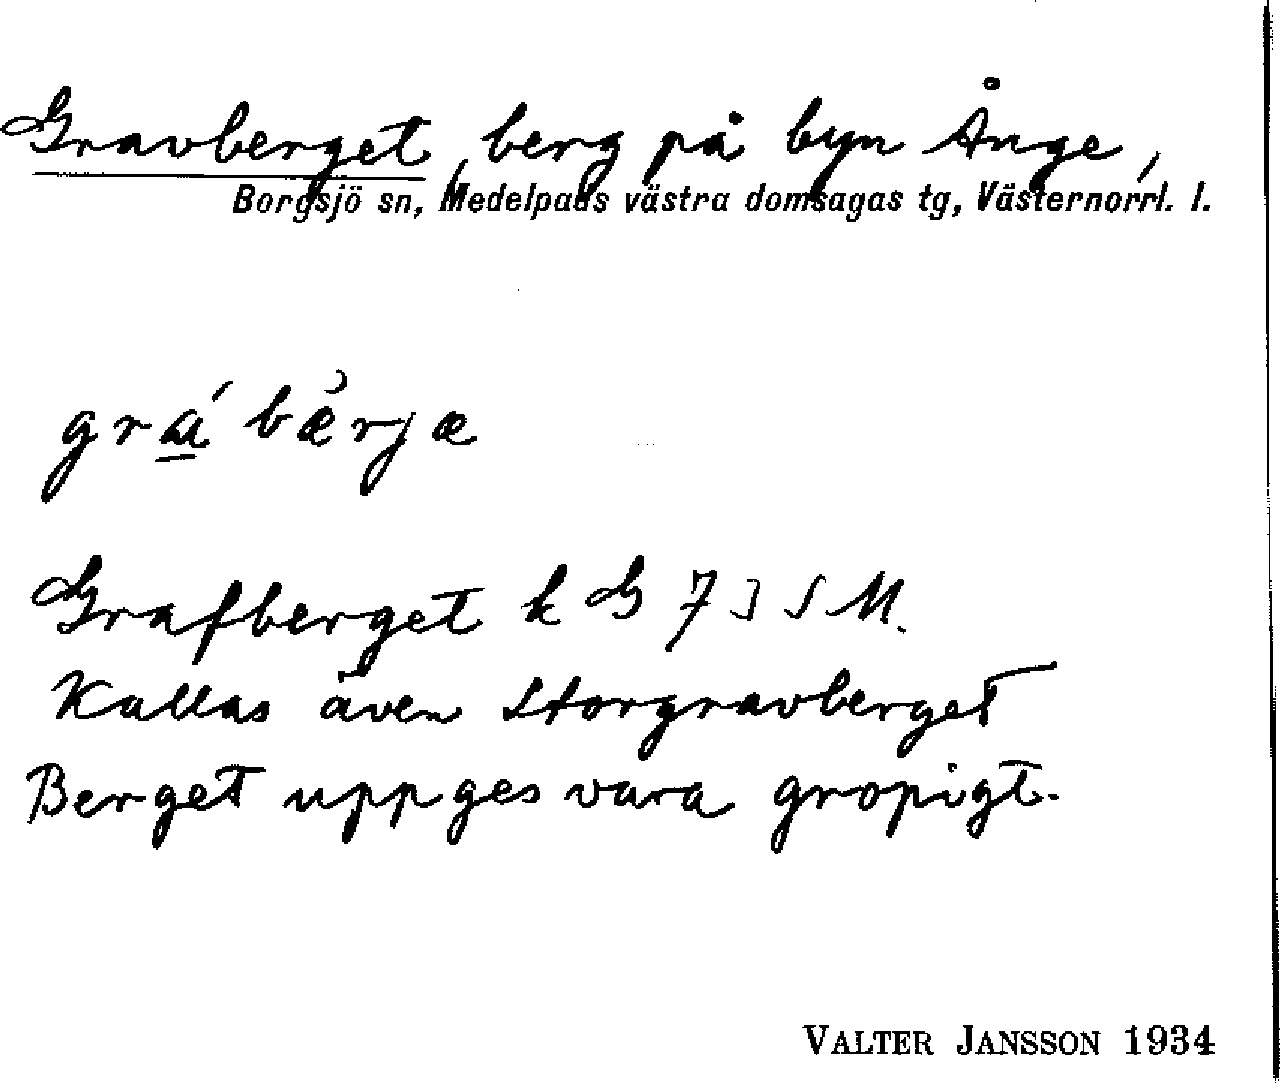 Gravberget, berg på byn Ånge,
Borgsjö sn, Medelpads västra domsagas tg, Västernorrl. l.
grá bærjæ
Grafberget k G 7 J S M.
Kallas även Storgravberget
Berget uppges vara gropigt.
VALTER JANSSON 1934